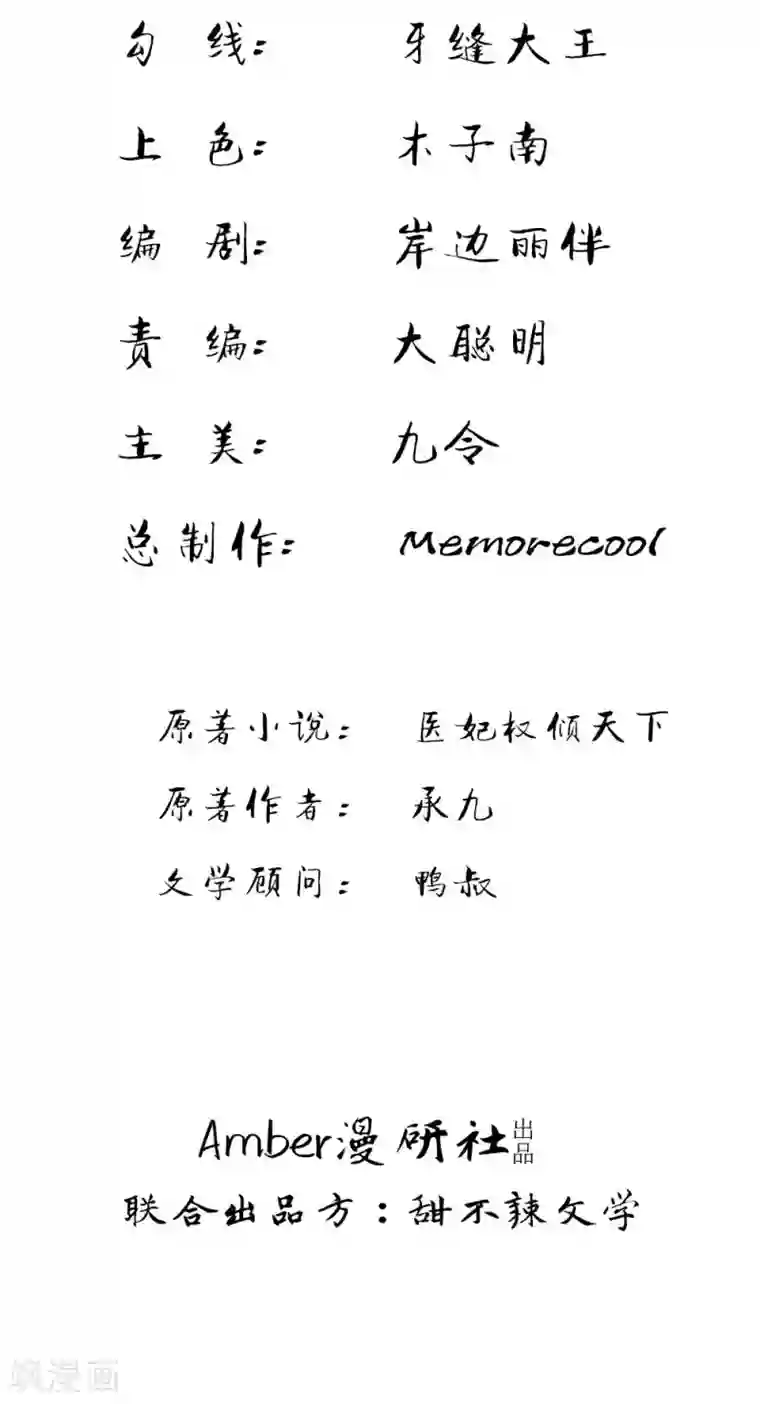 勾 线： 牙缝大王
上 色： 木子南
编 剧： 岸边丽伴
责 编： 大聪明
主 美： 九令
总制作： Memorecool
原著小说： 医妃权倾天下
原著作者： 承九
文学顾问： 鸭叔
Amber漫研社出品
联合出品方：甜不辣文学
飒漫画